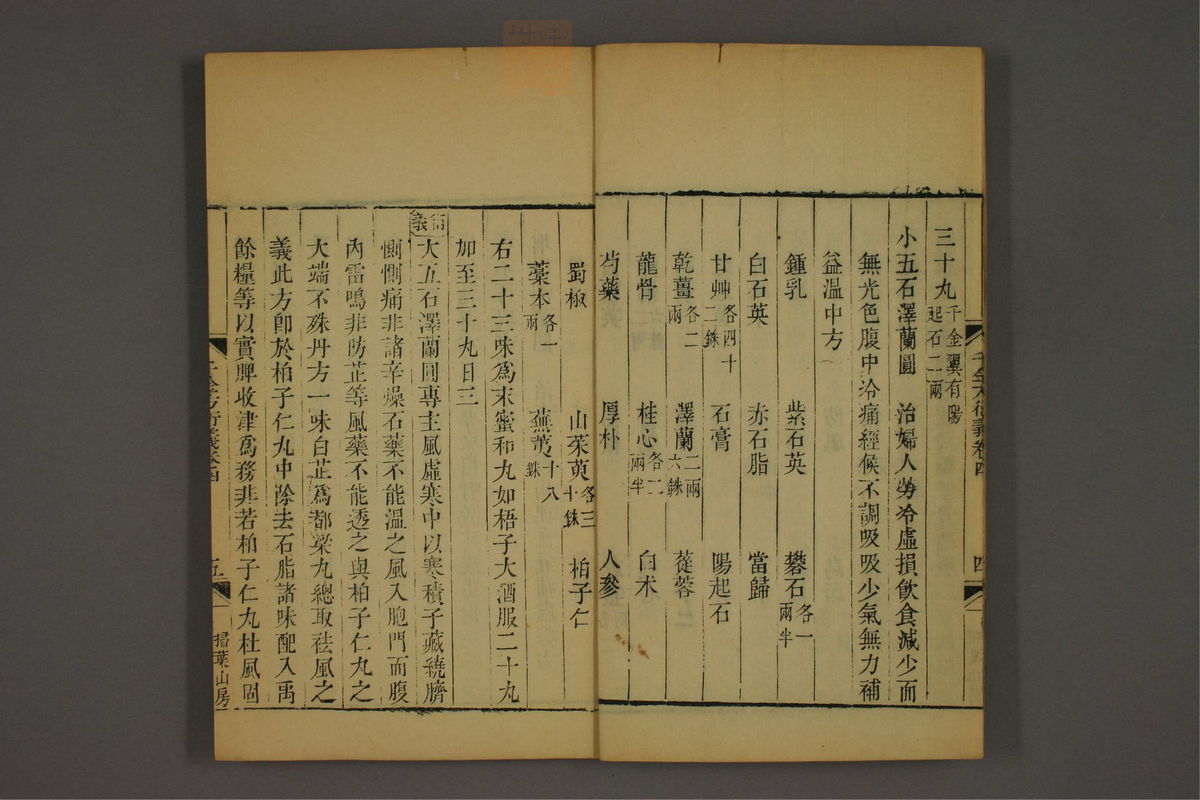 三十丸千金翼有陽起石二兩
小五石澤蘭圓　治婦人勞冷虛損飲食減少面
無光色腹中冷痛經候不調吸吸少氣無力補
益溫中方
鍾乳　紫石英　礬石各一兩半
白石英　赤石脂　當歸
甘艸各四十二銖　石膏　陽起石
乾薑各二兩　澤蘭二兩六銖　蓯蓉
龍骨　桂心各二兩半　白术
芍藥　厚朴　人參
蜀椒　山茱萸各三十銖　柏子仁
藁本各一兩　蕪荑十八銖
右二十三味爲末蜜和丸如梧子大酒服二十丸
加至三十丸日三
衍義大五石澤蘭圓專主風虛寒中以寒積子藏繞臍
惻惻痛非諸辛燥石藥不能溫之風入胞門而腹
內雷鳴非防芷等風藥不能透之與柏子仁丸之
大端不殊丹方一味白芷爲都梁丸總取祛風之
義此方卽於柏子仁丸中除去石脂諸味配入禹
餘糧等以實脾收津爲務非若柏子仁丸杜風固
五
掃葉山房